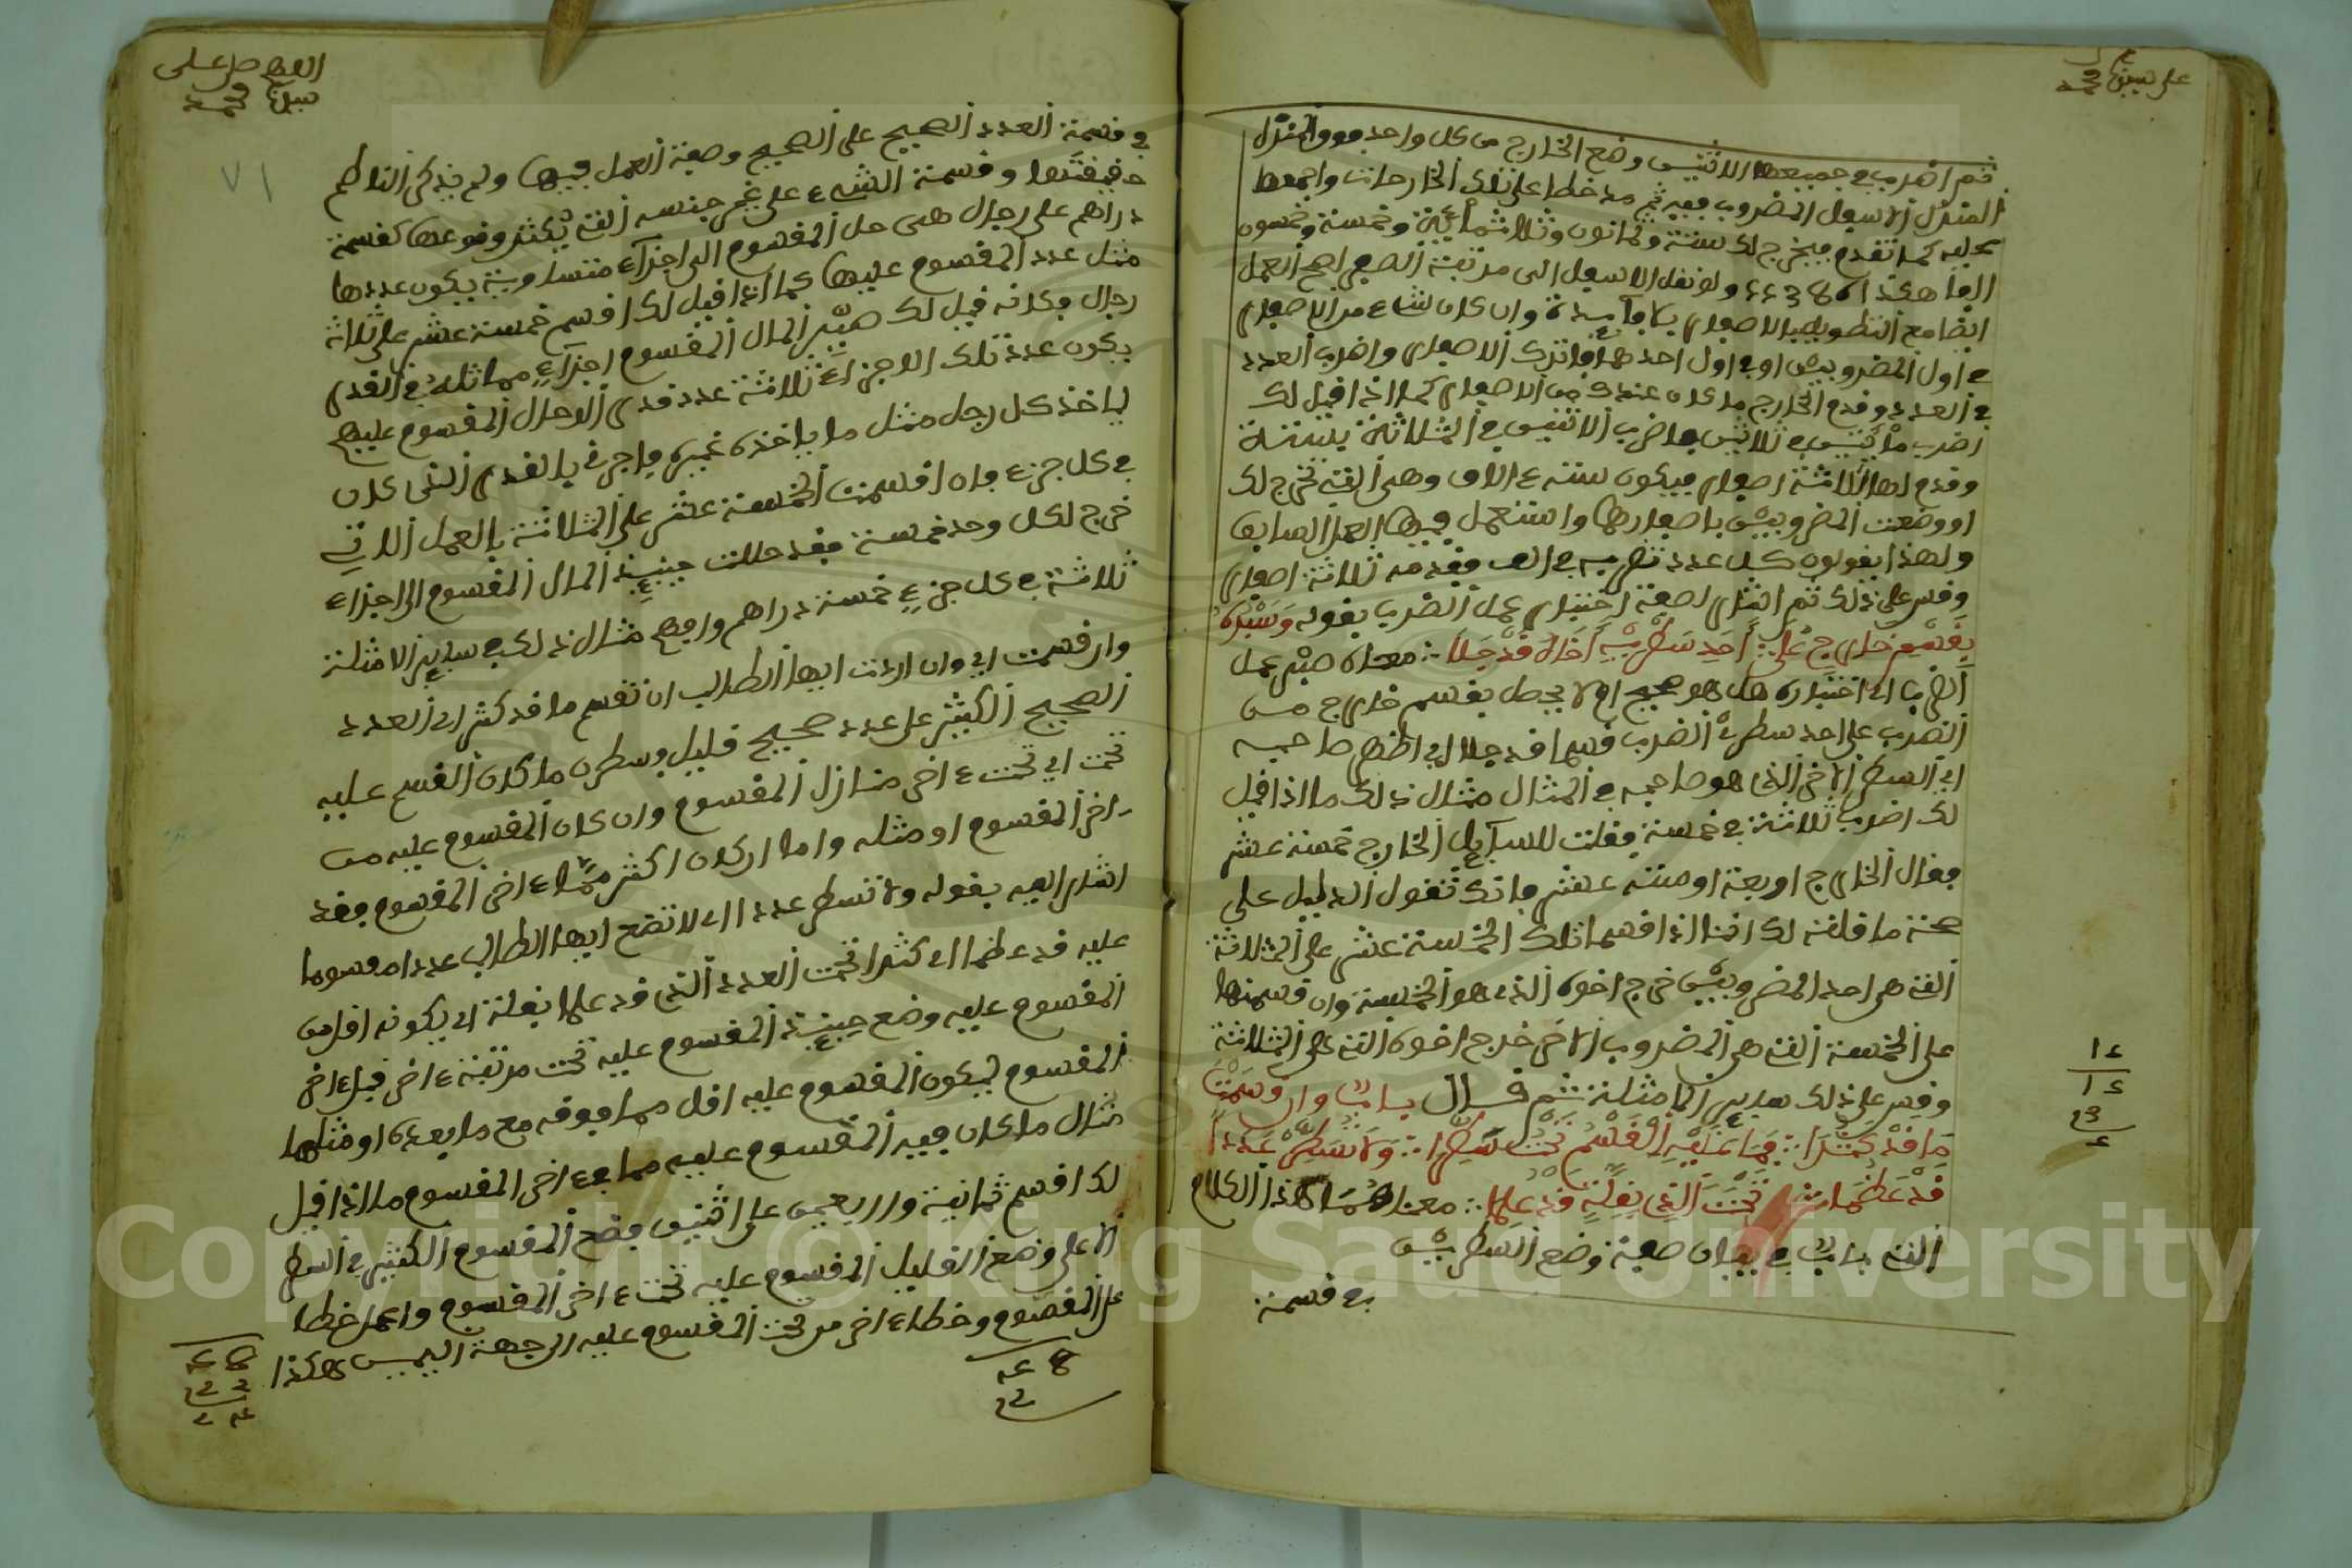 على سيدنا محمد
ثم اضرب في جميعها الاثنين وضع الخارج من كل واحد فوق المنزل
المنزل الاسفل المضروب فيه ثم مد خطا على تلك الخارجات واجمعها
عليه كما تقدم فيخرج لك ستة وثمانون وثلاثمائة وخمسة وخمسون
الفا هكذا ولو نقل الاسفل الى مرتبة الصفر اصح العمل
ايضا مع التطويل بلا فائدة وان كان شيء من الاصفار
في اول المضروبين او في اول احدهما فاترك الاصفار واضرب العدد
في العدد وقدم الخارج ما كان عندك من الاصفار كما اذا قيل لك
اضرب مائتين في ثلاثين فاضرب الاثنين في الثلاثة بستة
وقدم لها ثلاثة اصفار فيكون ستة ءالاف وهي التي تخرج لك
لو وضعت المضروبين باصفارها واستعمل فيها العمل السابق
ولهذا يقولون كل عدد تضربه في الف فقدمه ثلاثة اصفار
وقس على ذلك ثم اشار لصفة اختبار عمل الضرب بقوله وسبره
بقسم خارج على احد سطريه اخاه قد جلا معناه سبر عمل
الضرب اي اختباره هل هو صحيح ام لا يحصل بقسم خارج من
الضرب على احد سطري الضرب قسما قد جلا اي اظهر صاحبه
اي السطر الاخر الذي هو صاحبه في المثال مثال ذلك ما اذا قيل
لك اضرب ثلاثة في خمسة فقلت للسائل الخارج خمسة عشر
فقال الخارج اربعة او ستة عشر فانك تقول الدليل على
صحة ما قلته لك اننا اذا قسمنا تلك الخمسة عشر على الثلاثة
التي هي احد المضروبين خرج اخوه الذي هو الخمسة وان قسمتها
على الخمسة التي هي المضروب الاخر خرج اخوه التي هي الثلاثة
وقس على ذلك ساير الامثلة ثم قال باب وان قسمت
ما قد كثرا فما عليه القسم تحت سطرا ولا تسطر عددا
قد عظما تحت الذي بقلة قد علما معنا هذا الكلام
الذي باب في بيان صفة وضع السطرين
في قسمة
اللهم صل على
سيدنا محمد
٧١
في قسمة العدد الصحيح على الصحيح وصفة العمل فيها ولم يذكر الناظم
حقيقتها وقسمة الشيء على غير جنسه التي يكثر وقوعها كقسمة
دراهم على رجال هي حل المقسوم الى اجزاء متساوية يكون عددها
مثل عدد المقسوم عليها كما اذا قيل لك اقسم خمسة عشر على ثلاثة
رجال فكانه قيل لك صير المال المقسوم اجزاء مماثلة في القدر
يكون عدد تلك الاجزاء ثلاثة عدد قدر الرجال المقسوم عليهم
لياخذ كل رجل مثل ما ياخذه غيره فاجر في بالقدر الذي كان
في كل جزء فان اقسمت الخمسة عشر على الثلاثة بالعمل الاتي
خرج لكل وحد خمسة فقد حللت حينئذ المال المقسوم الى اجزاء
ثلاثة في كل جزء خمسة دراهم وافهم مثال ذلك في ساير الامثلة
وان قسمت اي وان اردت ايها الطالب ان تقسم ما قد كثر اي العدد
الصحيح الكثير على عدد صحيح قليل وسطرن ما كان القسم عليه
تحت اي تحت ءاخر منازل المقسوم وان كان المقسوم عليه من
ءاخر المقسوم او مثله واما ان كان اكثر مما ءاخر المقسوم فقد
اشار اليه بقوله ولا تسطر عددا اي لا تضع ايها الطالب عددا مقسوما
عليه قد عظما اي كثرا تحت العدد الذي قد علما بقلة اي يكونه اقل من
المقسوم عليه وضع حينئذ المقسوم عليه تحت مرتبة ءاخر قبل ءاخر
المقسوم ليكون المقسوم عليه اقل مما فوقه مع ما بعده او مثلها
مثال ما كان فيه المقسوم عليه مما في ءاخر المقسوم ما اذا قيل
لك اقسم ثمانية واربعين على اثنين فضع المقسوم الكثير في السطر
الاعلى وضع القليل المقسوم عليه تحت ءاخر المقسوم واعمل خطا
على المقسوم وخطا ءاخر من تحت المقسوم عليه الى جهة اليمين هكذا